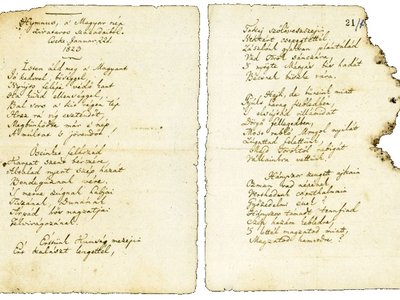 Hymnus, a' Magyar nép
zivataros századaiból.
Cseke, Január. 22d.
1823
Isten áldd meg a' Magyart
Jó kedvvel, bőséggel,
Nyújts feléje védő kart
Ha küzd ellenséggel;
Bal sors a' kit régen tép
Hozz rá víg esztendőt,
Megbünhödte már e' nép
A' multat 's jövendőt.
Őseinket felhozád
Kárpát szent bérczére,
Általad nyert szép hazát
Bendegúznak vére.
'S merre zúgnak habjai
Tiszának, Dunának,
Árpád' hős magzatjai
Felvirágozának.
Értünk Kunság' mezején
Ért kalászt lengettél,
21/
Tokaj' szőlővesszein
Nektárt csepegtettél.
Zászlónk gyakran plántálád
Vad Török' sánczára,
'S nyögte Mátyás' bús hadát
Bécsnek büszke vára.
Hajh, de bűneink miatt
Gyúlt harag kebledben,
'S elsújtád villámidat
Dörgő fellegedben,
Most rabló Mongol' nyilát
Zúgattad felettünk,
Majd Töröktől rabigát
Vállainkra vettünk.
Hányszor zengett ajkain
Ozmán' vad népének
Vert hadunk' csonthalmain
Győzedelmi ének!
Hányszor támadt tenfiad
Szép hazám kebledre,
'S lettél magzatod miatt,
Magzatod' hamvvedre?